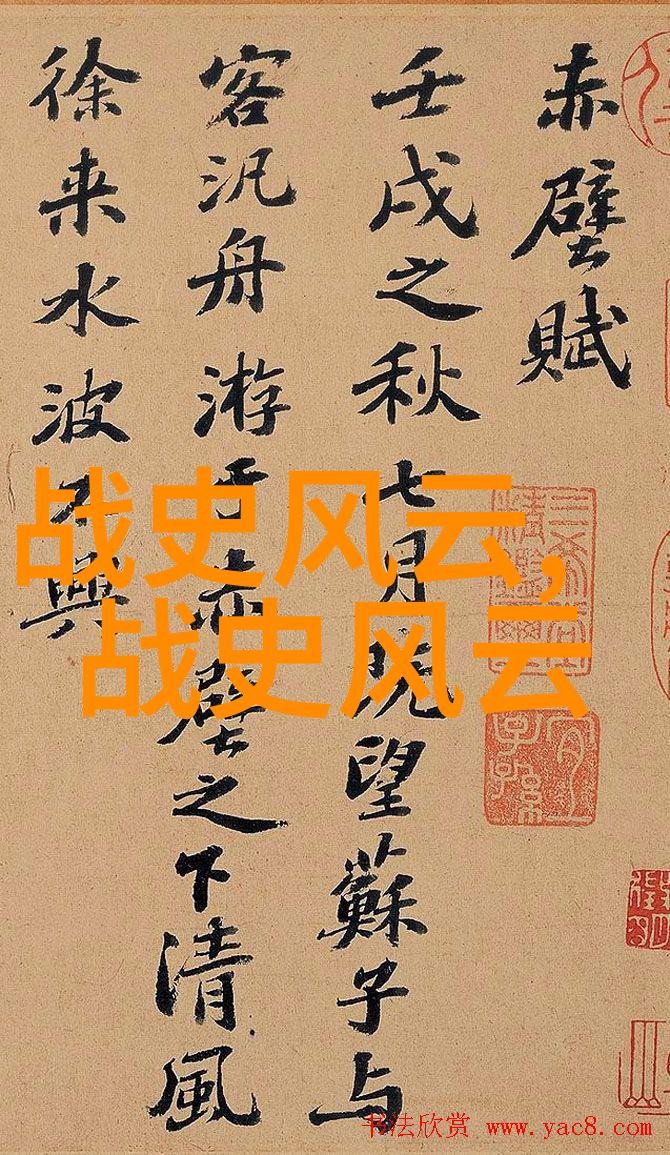 赤壁賦
壬戌之秋七月既望蘇子与
客汎舟游于赤壁之下清風
徐来水波不興
战史风云,
战史风云
三希堂
精鑑璽
宜
子孫
书法欣赏 www.yac8.com